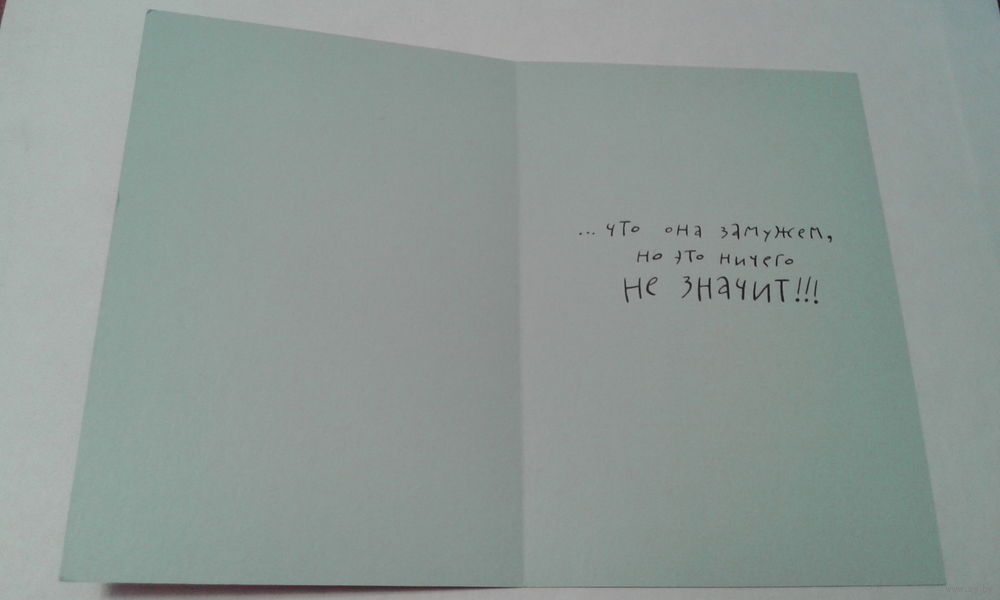 ... что она замужем,
но это ничего
не значит!!!